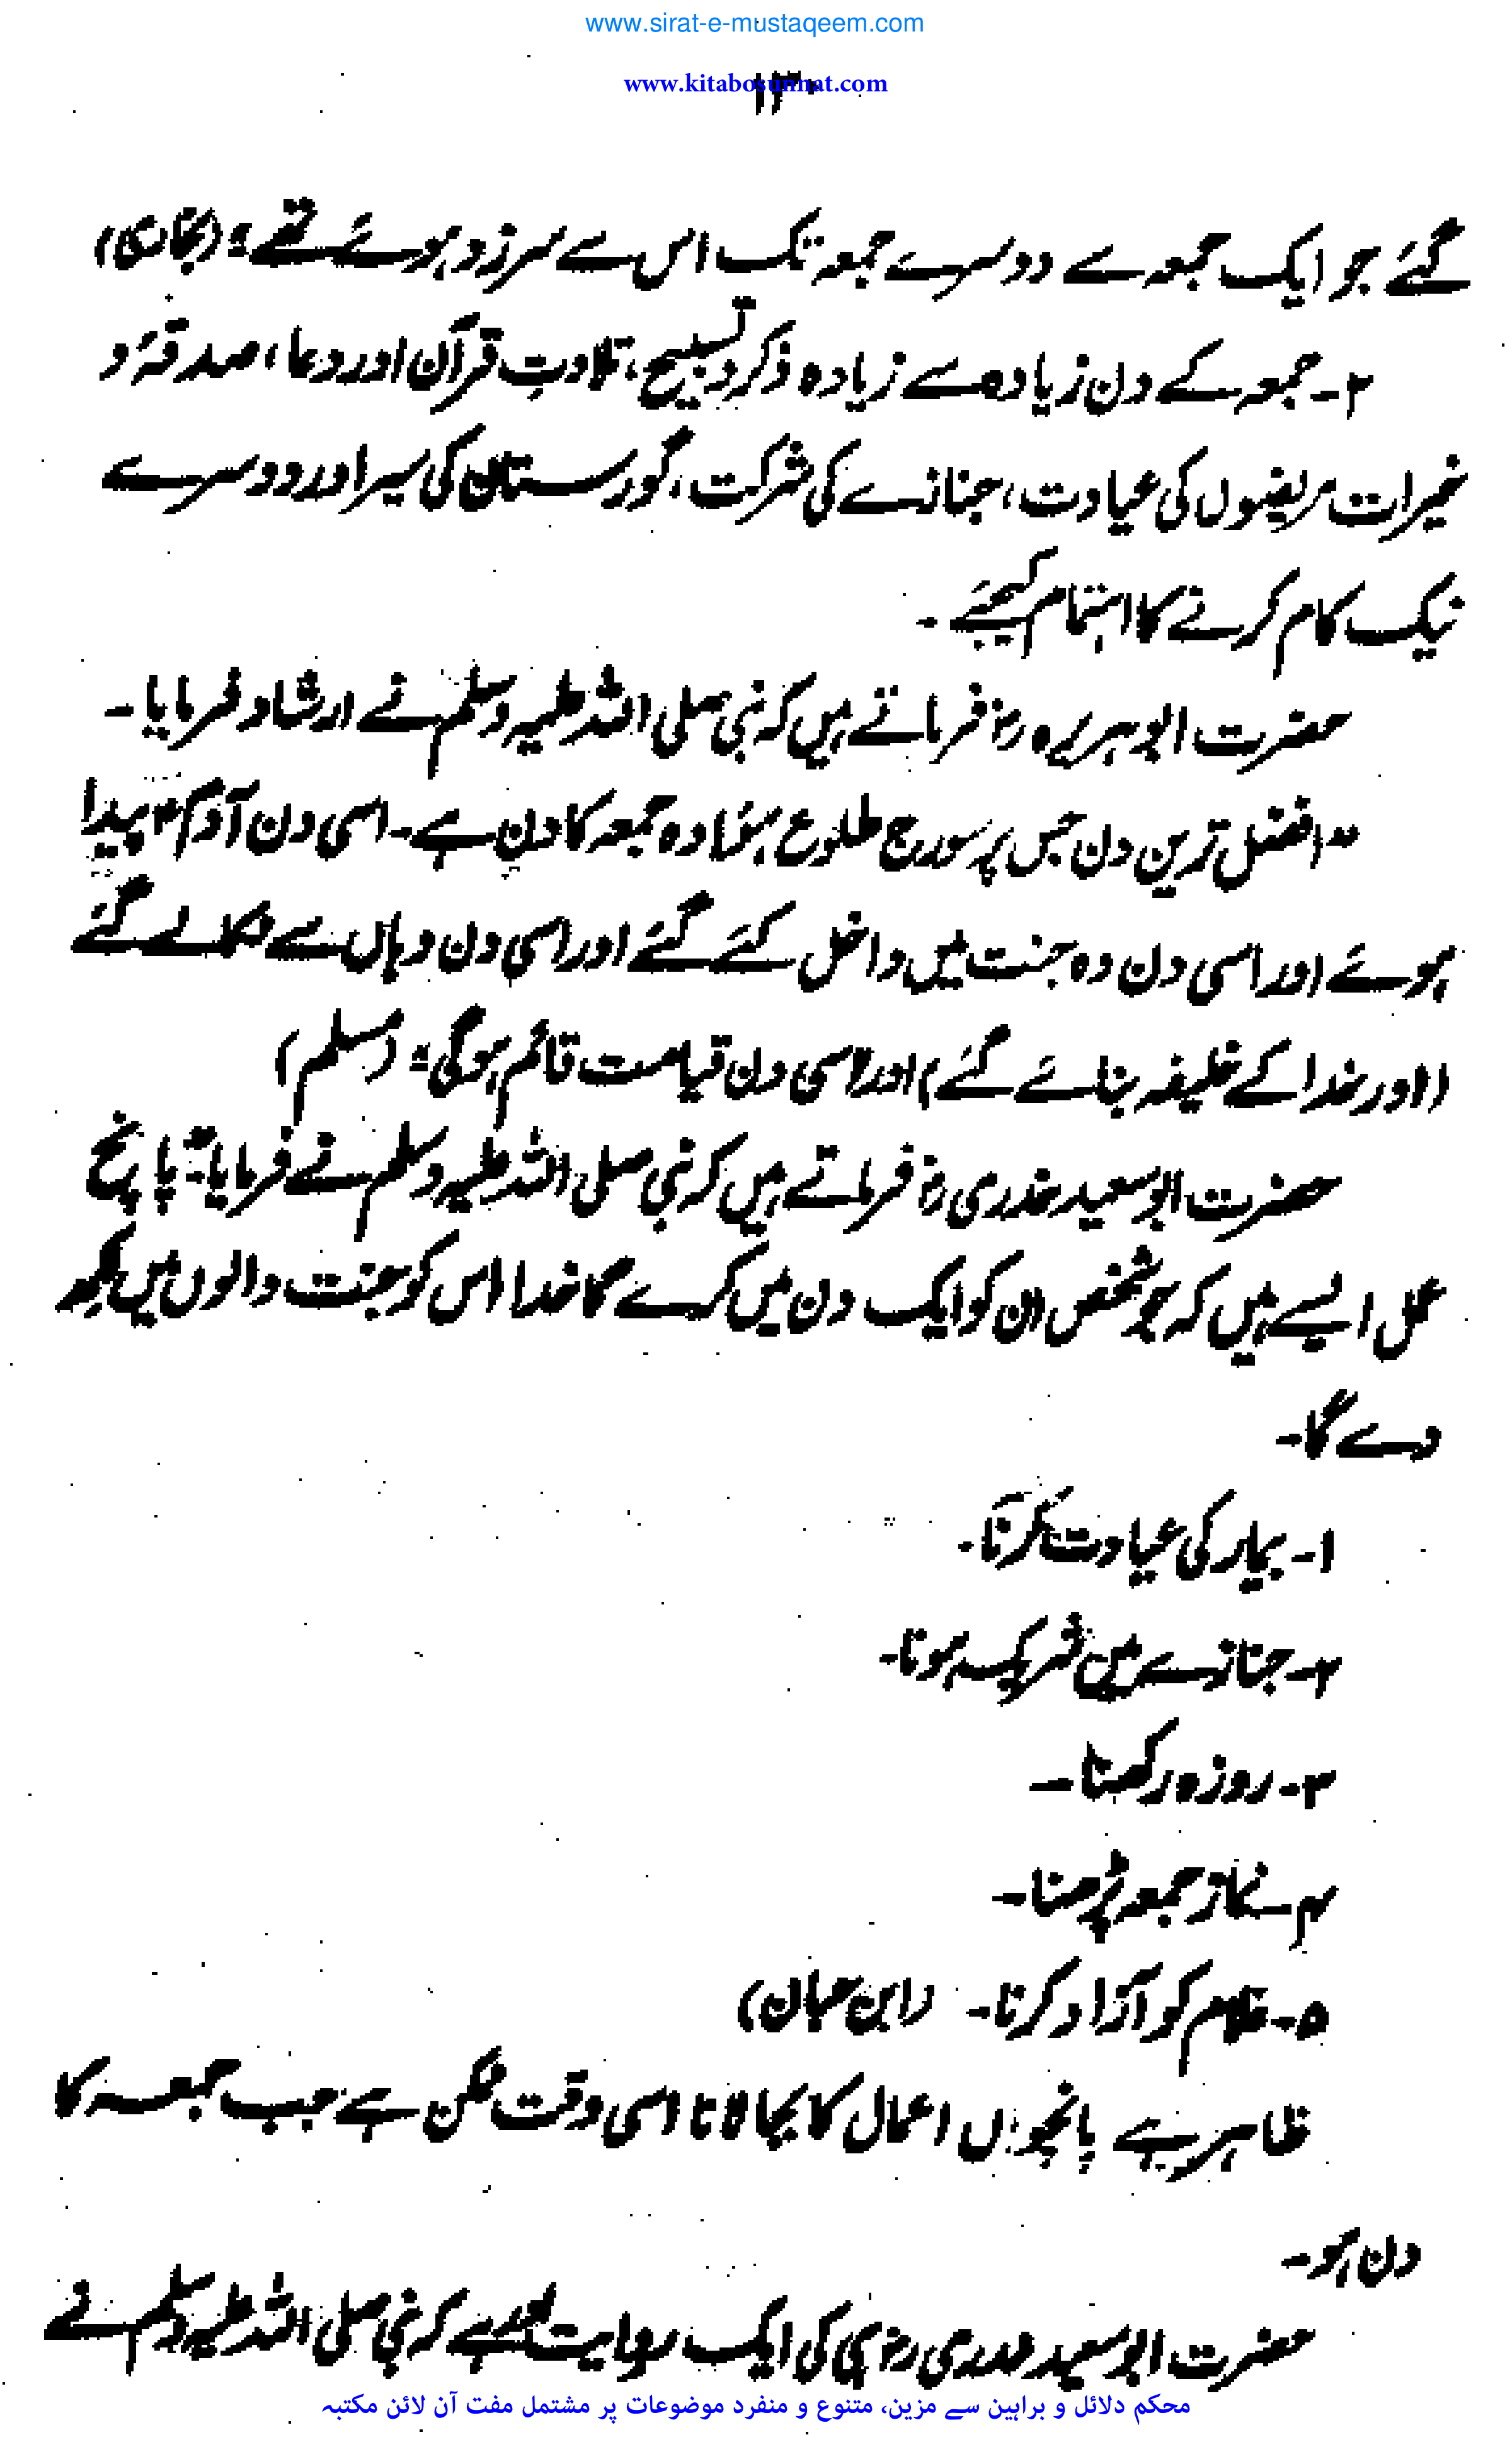 www.sirat-e-mustaqeem.com
www.kitabosunnat.com
۱۳۰
گئے جو ایک جمعہ سے دوسرے جمعہ تک اس سے سرزد ہوئے تھے" (بخاری)
۲- جمعہ کے دن زیادہ سے زیادہ ذکر و تسبیح، تلاوتِ قرآن اور دعا، صدقہ و
خیرات مریضوں کی عیادت، جنازے کی شرکت، گورستان کی سیر اور دوسرے
نیک کام کرنے کا اہتمام کیجئے ۔
حضرت ابو ہریرہ رض فرماتے ہیں کہ نبی صلی اللہ علیہ وسلم نے ارشاد فرمایا ۔
"افضل ترین دن جس پر سورج طلوع ہؤا وہ جمعہ کا دن ہے ۔ اسی دن آدم ؑ پیدا
ہوئے اور اسی دن وہ جنت میں داخل کئے گئے اور اسی دن وہاں سے نکالے گئے
(اور خدا کے خلیفہ بنائے گئے) اور اسی دن قیامت قائم ہوگی" (مسلم)
حضرت ابو سعید خدری رض فرماتے ہیں کہ نبی صلی اللہ علیہ وسلم نے فرمایا: "پانچ
عمل ایسے ہیں کہ جو شخص ان کو ایک دن میں کرے گا خدا اس کو جنت والوں میں لکھ
دے گا ۔
۱- بیمار کی عیادت کرنا ۔
۲- جنازے میں شریک ہونا ۔
۳- روزہ رکھنا ۔
۴- نماز جمعہ پڑھنا ۔
۵- غلام کو آزاد کرنا ۔ (ابن حبان)
ظاہر ہے پانچوں اعمال کا بجا لانا اسی وقت ممکن ہے جب جمعہ کا
دن ہو ۔
حضرت ابو سعید خدری رض ہی کی ایک روایت ہے کہ نبی صلی اللہ علیہ وسلم نے
محکم دلائل و براہین سے مزین، متنوع و منفرد موضوعات پر مشتمل مفت آن لائن مکتبہ